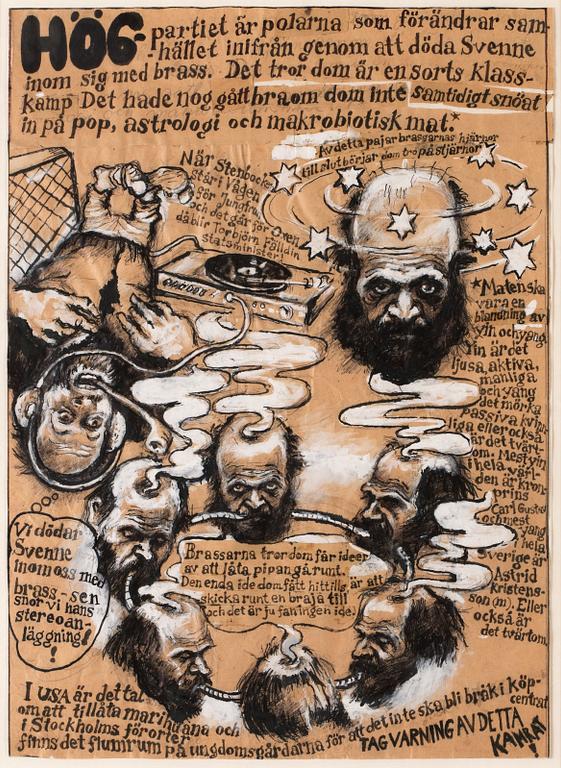 HÖG-partiet är polarna som förändrar sam-
hället inifrån genom att döda Svenne
inom sig med brass. Det tror dom är en sorts klass-
kamp Det hade nog gått bra om dom inte samtidigt snöat
in på pop, astrologi och makrobiotisk mat.*
Av detta pajar brassarnas hjärnor
till slut börjar dom tro på stjärnor
När Stenbocken
står i Vågen
för Jungfrun
och det går för Oxen
då blir Torbjörn Fälldin
statsminister!
*Maten ska
vara en
blandning av
yin och yang
Yin är det
ljusa, aktiva,
manliga
och yang
det mörka
passiva kvinn-
liga eller också
är det tvärt-
om. Mest yin
i hela värl-
den är kron-
prins
Carl Gustaf
och mest
yang i hela
Sverige är
Astrid
Kristens-
son (m). Eller
också är
det tvärtom.
Vi dödar
Svenne
inom oss med
brass - sen
snor vi hans
stereoan-
läggning!
Brassarna tror dom får ideer
av att låta pipan gå runt.
Den enda ide dom fått hittills är att
skicka runt en braja till
och det är ju fan ingen ide!
I USA är det tal
om att tillåta marihuana och
i Stockholms förorter
finns det flumrum på ungdomsgårdarna för att det inte ska bli bråk i köp-
centrat
TAG VARNING AV DETTA
KAMRAT!